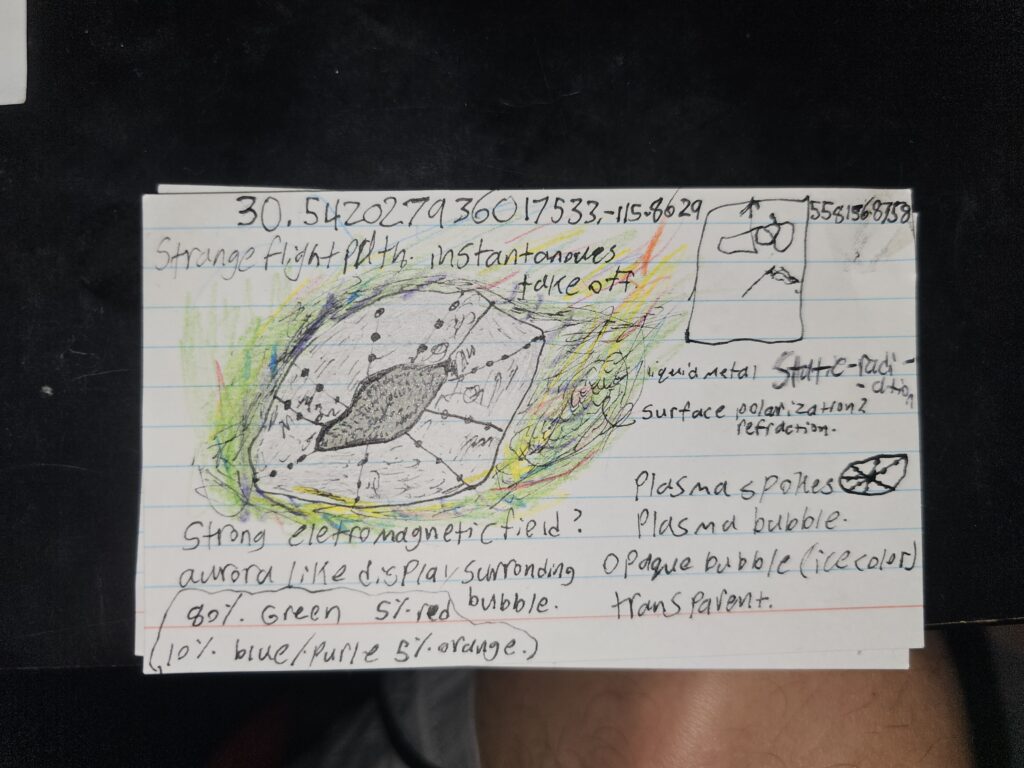 30.54202793601 7533,-115.8629 5581568758
Strange flight path. instantanoues
take off
liquid metal Static-radi-
-ation
surface polarization?
refraction.
Plasma spokes
Plasma bubble.
Strong eletromagnetic field?
aurora like display surronding
bubble.
opaque bubble (ice color)
transparent.
80%. Green 5% red
10% blue/purle 5% orange.